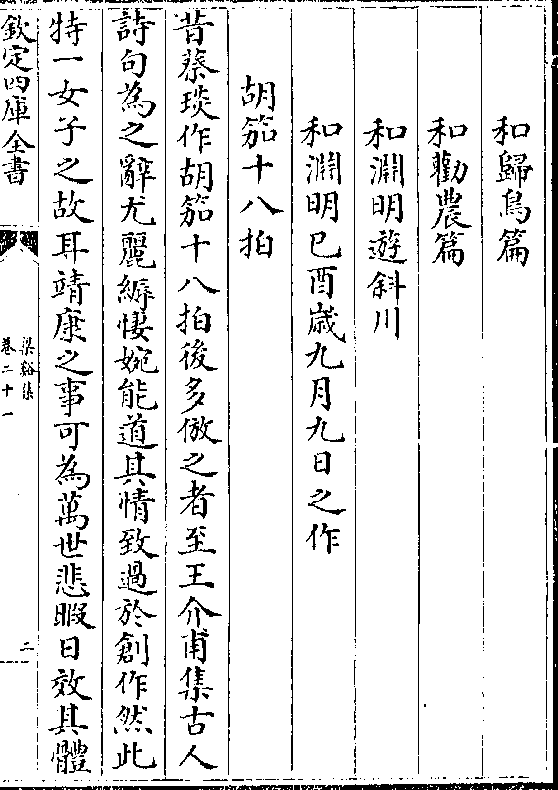 和歸鳥篇
和勸農篇
和淵明遊斜川
和淵明己酉歲九月九日之作
胡笳十八拍
昔蔡琰作胡笳十八拍後多倣之者至王介甫集古人
詩句為之辭尤麗縟悽婉能道其情致過於創作然此
特一女子之故耳靖康之事可為萬世悲暇日效其體
欽定四庫全書
梁谿集
卷二十一
二